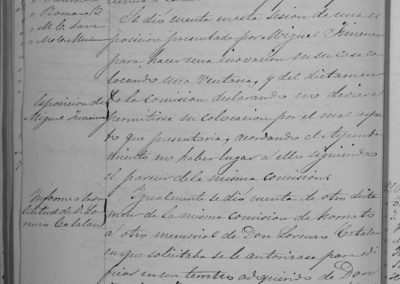 Se dió cuenta en esta sesion de una es
posicion presentada por Miguel Jimenez
para hacer una inovacion en su casa co
locando una Ventana, y del dictamen
de la comision declarando no debiera
permitirse su colocacion por el mal aspec
to que presentaria, acordando el Ayunta
miento no haber lugar a ello siguiendo
el parecer de la misma comision
Igualmente se dió cuenta de otro dita
men de la misma comision de Hornato
á otro memorial de Don Lorenzo Catalan
en que solicitaba se le autorizase para edi
ficar en un terreno adquirido de Don
Esposicion de
Miguel Jimenez
Informe a la so
licitud de D. Lo
renzo Catalan